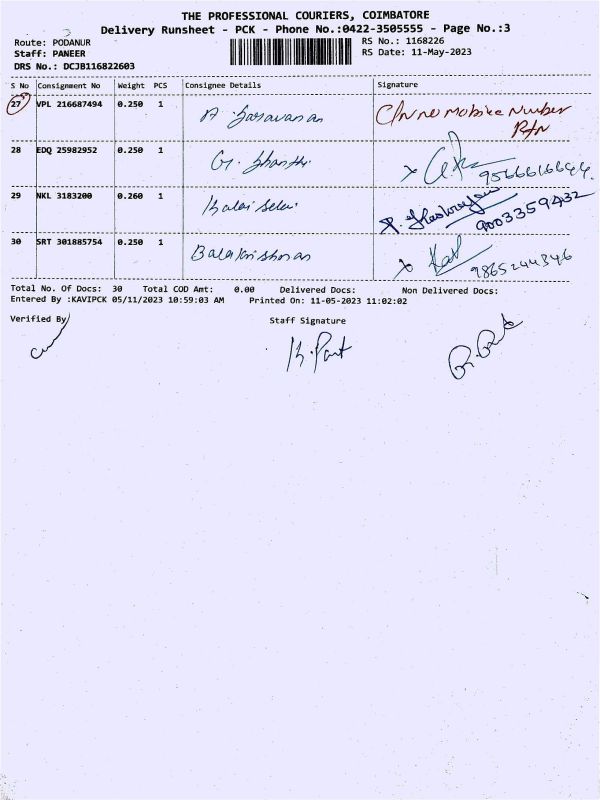 THE PROFESSIONAL COURIERS, COIMBATORE
Delivery Runsheet - PCK - Phone No.:0422-3505555 - Page No.:3
Route: PODANUR
Staff: PANEER
DRS No.: DCJB116822603
RS No.: 1168226
RS Date: 11-May-2023
S No Consignment No Weight PCS Consignee Details Signature
27 VPL 216687494 0.250 1 A. Saravanan C/N no Mobike Number
28 EDQ 25982952 0.250 1 G. Shanthi 9566616644
29 NKL 3183200 0.260 1 Kalai Selvi 9003359432
30 SRT 301885754 0.250 1 Balakrishnan 9865244346
Total No. Of Docs: 30 Total COD Amt: 0.00 Delivered Docs: Non Delivered Docs:
Entered By :KAVIPCK 05/11/2023 10:59:03 AM Printed On: 11-05-2023 11:02:02
Verified By Staff Signature